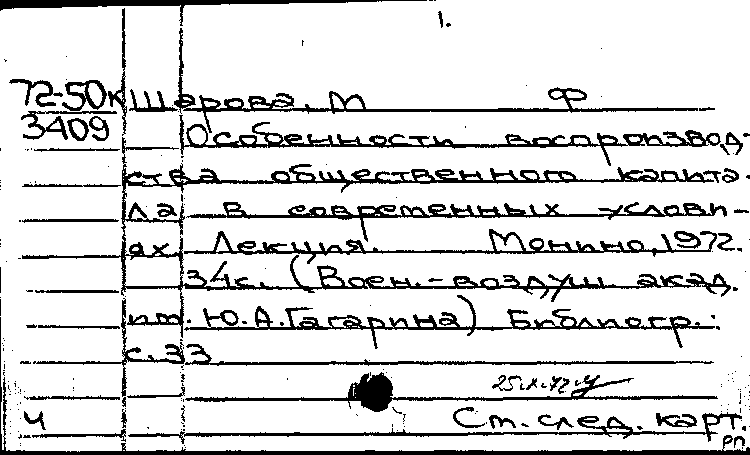 1.
72-50к Шарова, М Ф
3409 Особенности воспроизвод-
ства общественного капита-
ла в современных услови-
ях. Лекция. Монино, 1972.
34с. (Воен.-воздуш. акад.
им. Ю.А.Гагарина) Библиогр.:
с.33
25.X.72.
Ч Ст. след. карт.
РП.